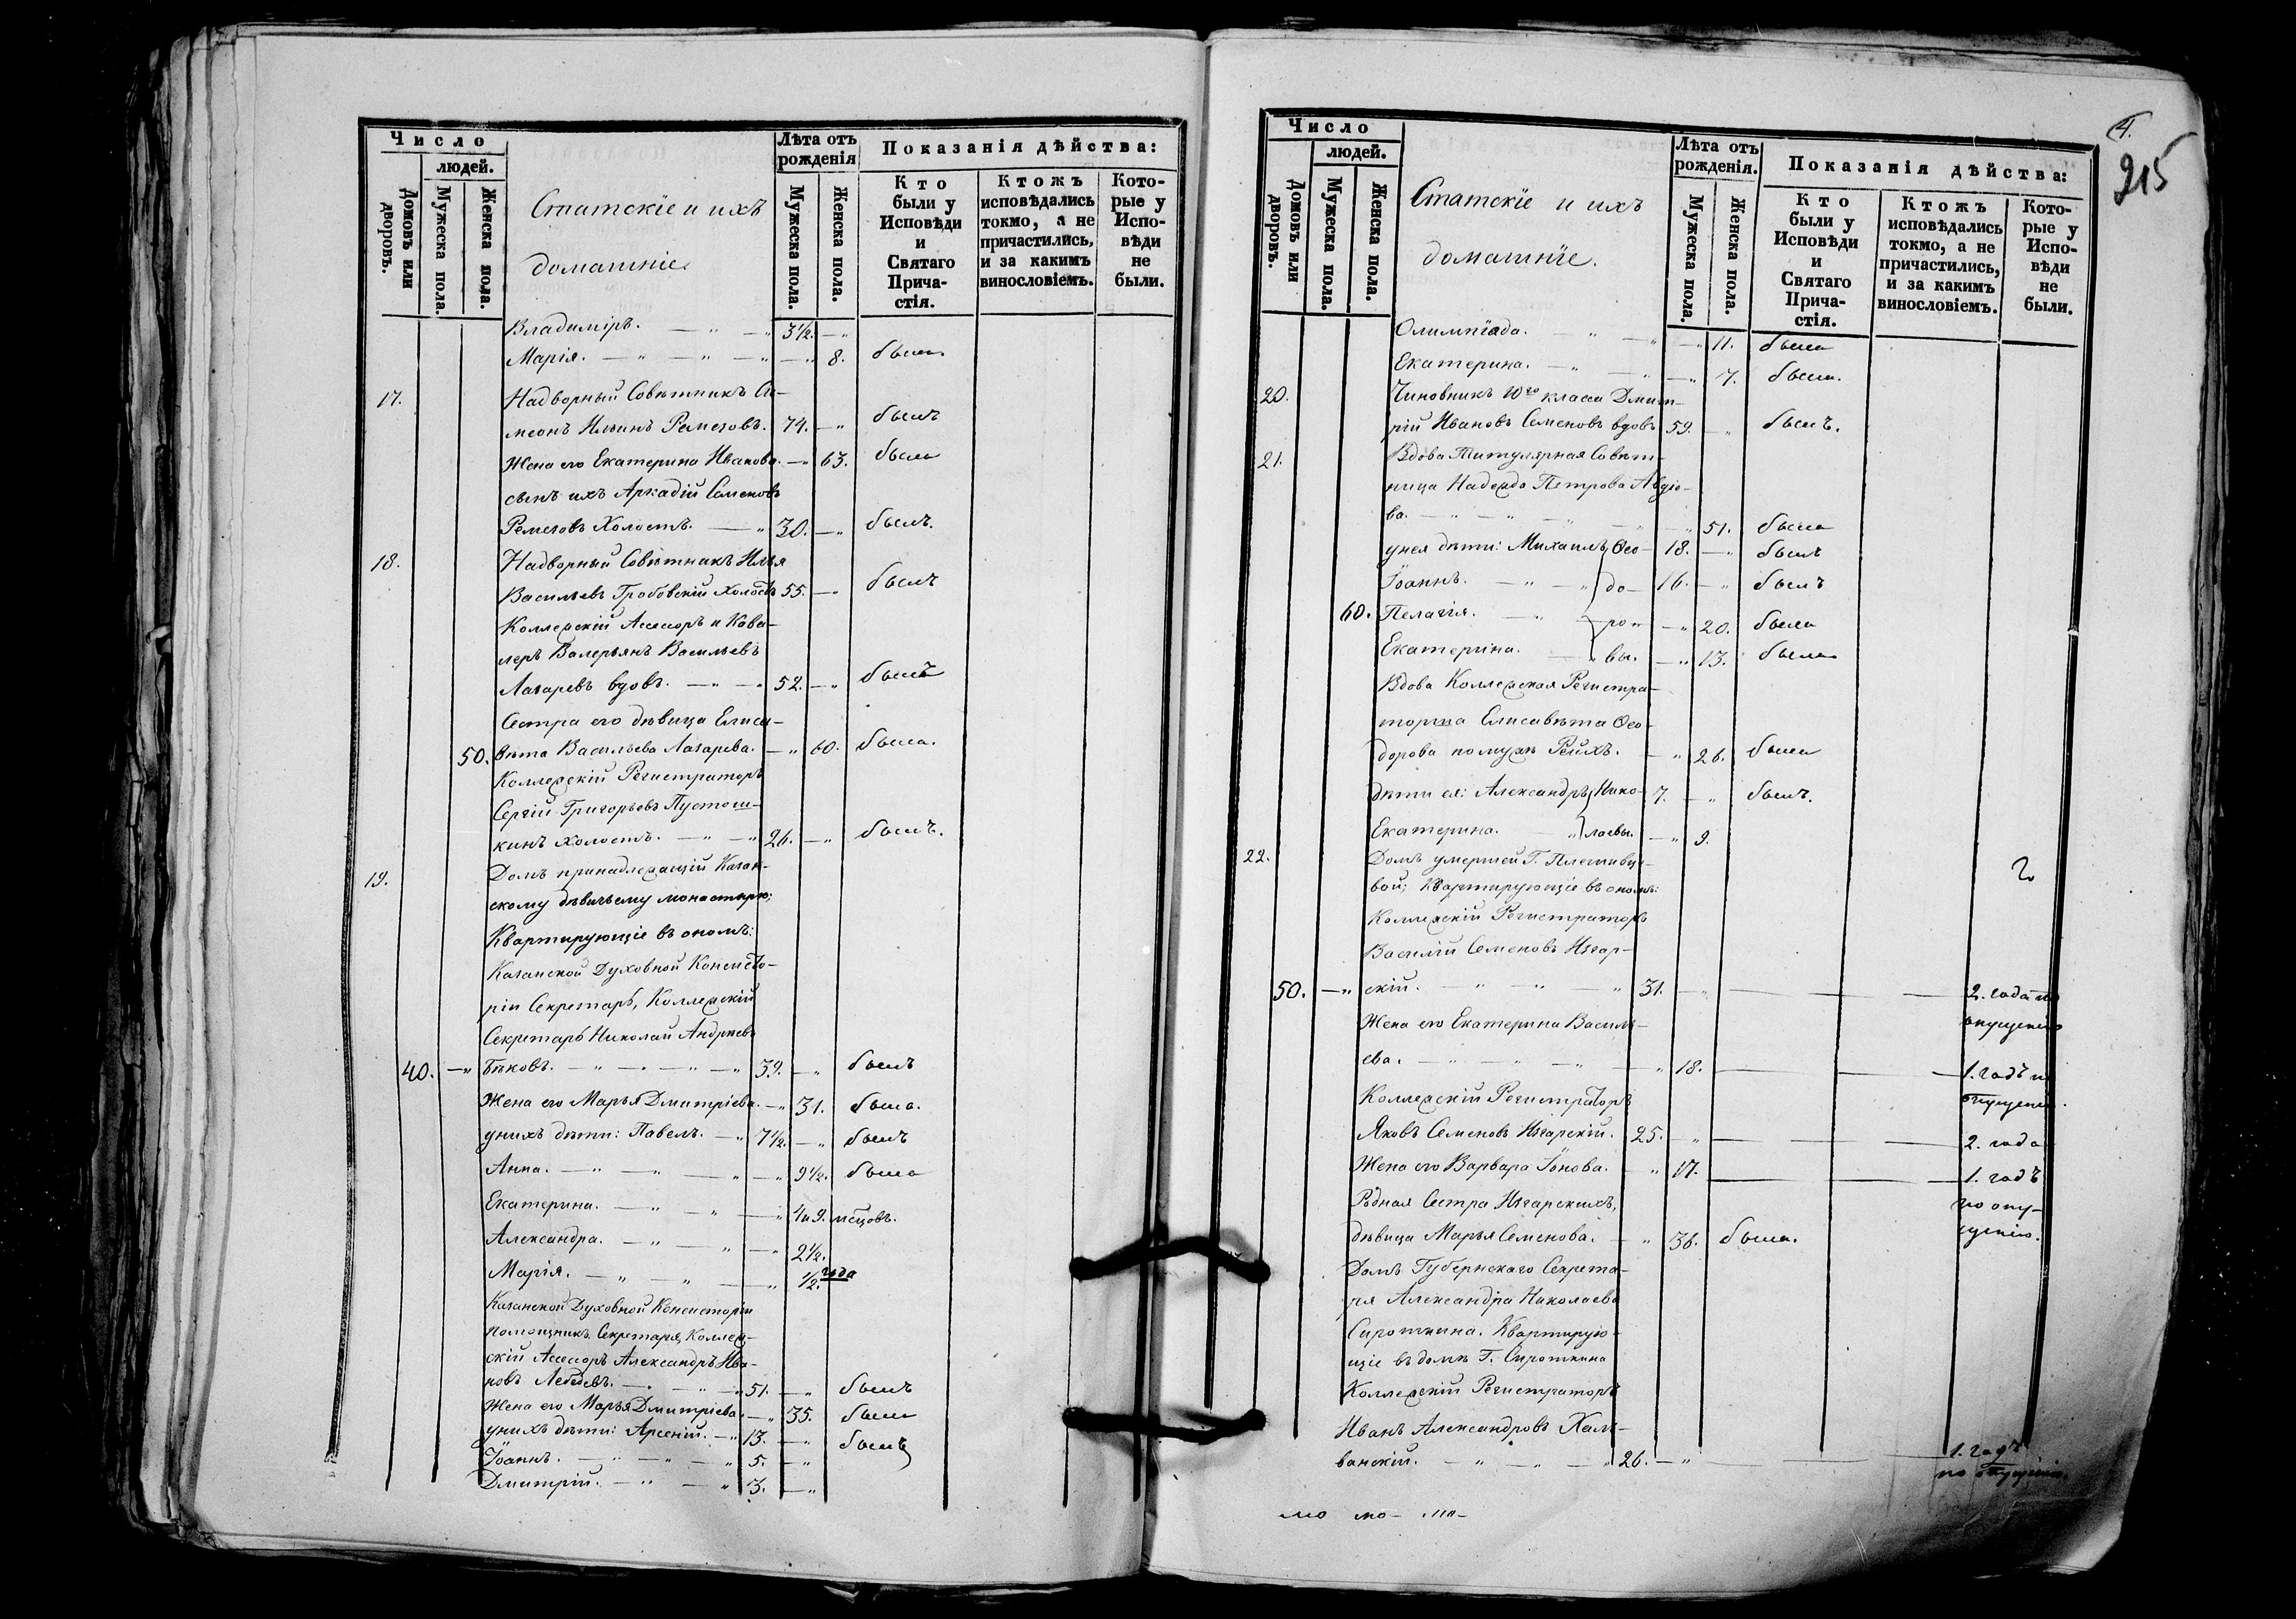 Число
людей.
Домовъ или дворовъ.
Мужеска пола.
Женска пола.
Статскіе и ихъ
домашніе
Лѣта отъ рожденія
Мужеска пола.
Женска пола.
Показанія дѣйства:
Кто были у Исповѣди и Святаго Прича-стія.
Ктожъ исповѣдались токмо, а не причастились, и за какимъ винословіемъ.
Кото-рые у Испо-вѣди не были.
Владиміръ. — „ — „ 3½. — „
Марія. — „ — „ — „ — „ 8. была
17. Надворный Совѣтникъ Си-
меонъ Ильинъ Ремезовъ. 74. — „ былъ
Жена его Екатерина Иванова. — „ 63. была
сынъ ихъ Аркадій Семеновъ
Ремезовъ Холостъ. — „ 30. — „ былъ.
18. Надворный Совѣтникъ Илья
Васильевъ Гробовскій Холостъ 55. — „ былъ
Коллежскій Ассесоръ и Кава-
леръ Валерьянъ Васильевъ
Лазаревъ вдовъ. — „ — „ 52. — „ былъ
Сестра его дѣвица Елиса-
50. вѣта Васильева Лазарева. — „ 60. была.
Коллежскій Регистраторъ
Сергій Григорьевъ Пустош-
кинъ холостъ. — „ — „ 26. — „ былъ.
19. Домъ принадлежащій Казан-
скому дѣвичьему монастырю;
Квартирующіе въ ономъ:
Казанской Духовной Консисто-
ріи Секретарь, Коллежскій
Секретарь Николай Андреевъ
40. — „ Бѣковъ. — „ — „ — „ — „ 39. — „ былъ
Жена его Марья Дмитріева. — „ 31. была.
у нихъ дѣти: Павелъ. — „ 7½. — „ былъ
Анна. — „ — „ — „ — „ 9½. была
Екатерина. — „ — „ — „ 4 и 9. мѣсцовъ.
Александра. — „ — „ — „ 2½.
Марія. — „ — „ — „ ½. года
Казанской Духовной Консисторіи
помощникъ Секретаря, Коллеж-
скій Ассесоръ Александръ Ива-
новъ Лебедевъ. — „ — „ 51. — „ былъ
Жена его Марья Дмитріева. — „ 35. была
у нихъ дѣти: Арсеній. — „ 13. — „ былъ
Іоаннъ. — „ — „ — „ 5. — „
Дмитрій. — „ — „ 3. — „
4.
215
Число
людей.
Домовъ или дворовъ.
Мужеска пола.
Женска пола.
Статскіе и ихъ
домашніе.
Лѣта отъ рожденія.
Мужеска пола.
Женска пола.
Показанія дѣйства:
Кто были у Исповѣди и Святаго Прича-стія.
Ктожъ исповѣдались токмо, а не причастились, и за какимъ винословіемъ.
Кото-рые у Испо-вѣди не были.
Олимпіада. — „ — „ — „ 11. была
Екатерина. — „ — „ — „ 7. была.
20. Чиновникъ 10го класса Дмит-
рій Ивановъ Семеновъ вдовъ 59. — „ былъ.
21. Вдова Титулярная Совѣт-
ница Надежда Петрова Авдіо-
ва. — „ — „ — „ 51. была
у нея дѣти: Михаилъ Ѳео- 18. — „ былъ
Іоаннъ. — „ — „ до- 16. — „ былъ
60. Пелагія. — „ ро- — „ 20. была
Екатерина. — „ вы. — „ 13. была
Вдова Коллежская Регистра-
торша Елисавѣта Ѳео-
дорова по мужѣ Рейхъ. — „ 26. была
дѣти ея: Александръ Нико- 7. — „ былъ.
Екатерина. — „ лаевы. — „ 9.
22. Домъ умершей Г. Плешивце-
вой; Квартирующіе въ ономъ:
Коллежскій Регистраторъ
Василій Семеновъ Изгар-
50. — „ скій. — „ — „ — „ 31. — „ — 2. года по
опущенію
Жена его Екатерина Василь-
ева. — „ — „ — „ — „ 18. — 1. годъ по
опущенію.
Коллежскій Регистраторъ
Яковъ Семеновъ Изгарскій. 25. — „ — 2. года
Жена его Варвара Іонова. — „ 17. — 1. годъ
Родная Сестра Изгарскихъ, по опу-
дѣвица Марья Семенова. — „ 36. была. щенію.
Домъ Губернскаго Секрета-
ря Александра Николаева
Сироткина. Квартирую-
щіе въ домѣ Г. Сироткина
Коллежскій Регистраторъ
Иванъ Александровъ Халь-
ванскій. — „ — „ — „ 26. — „ — 1. годъ
по опущенію.